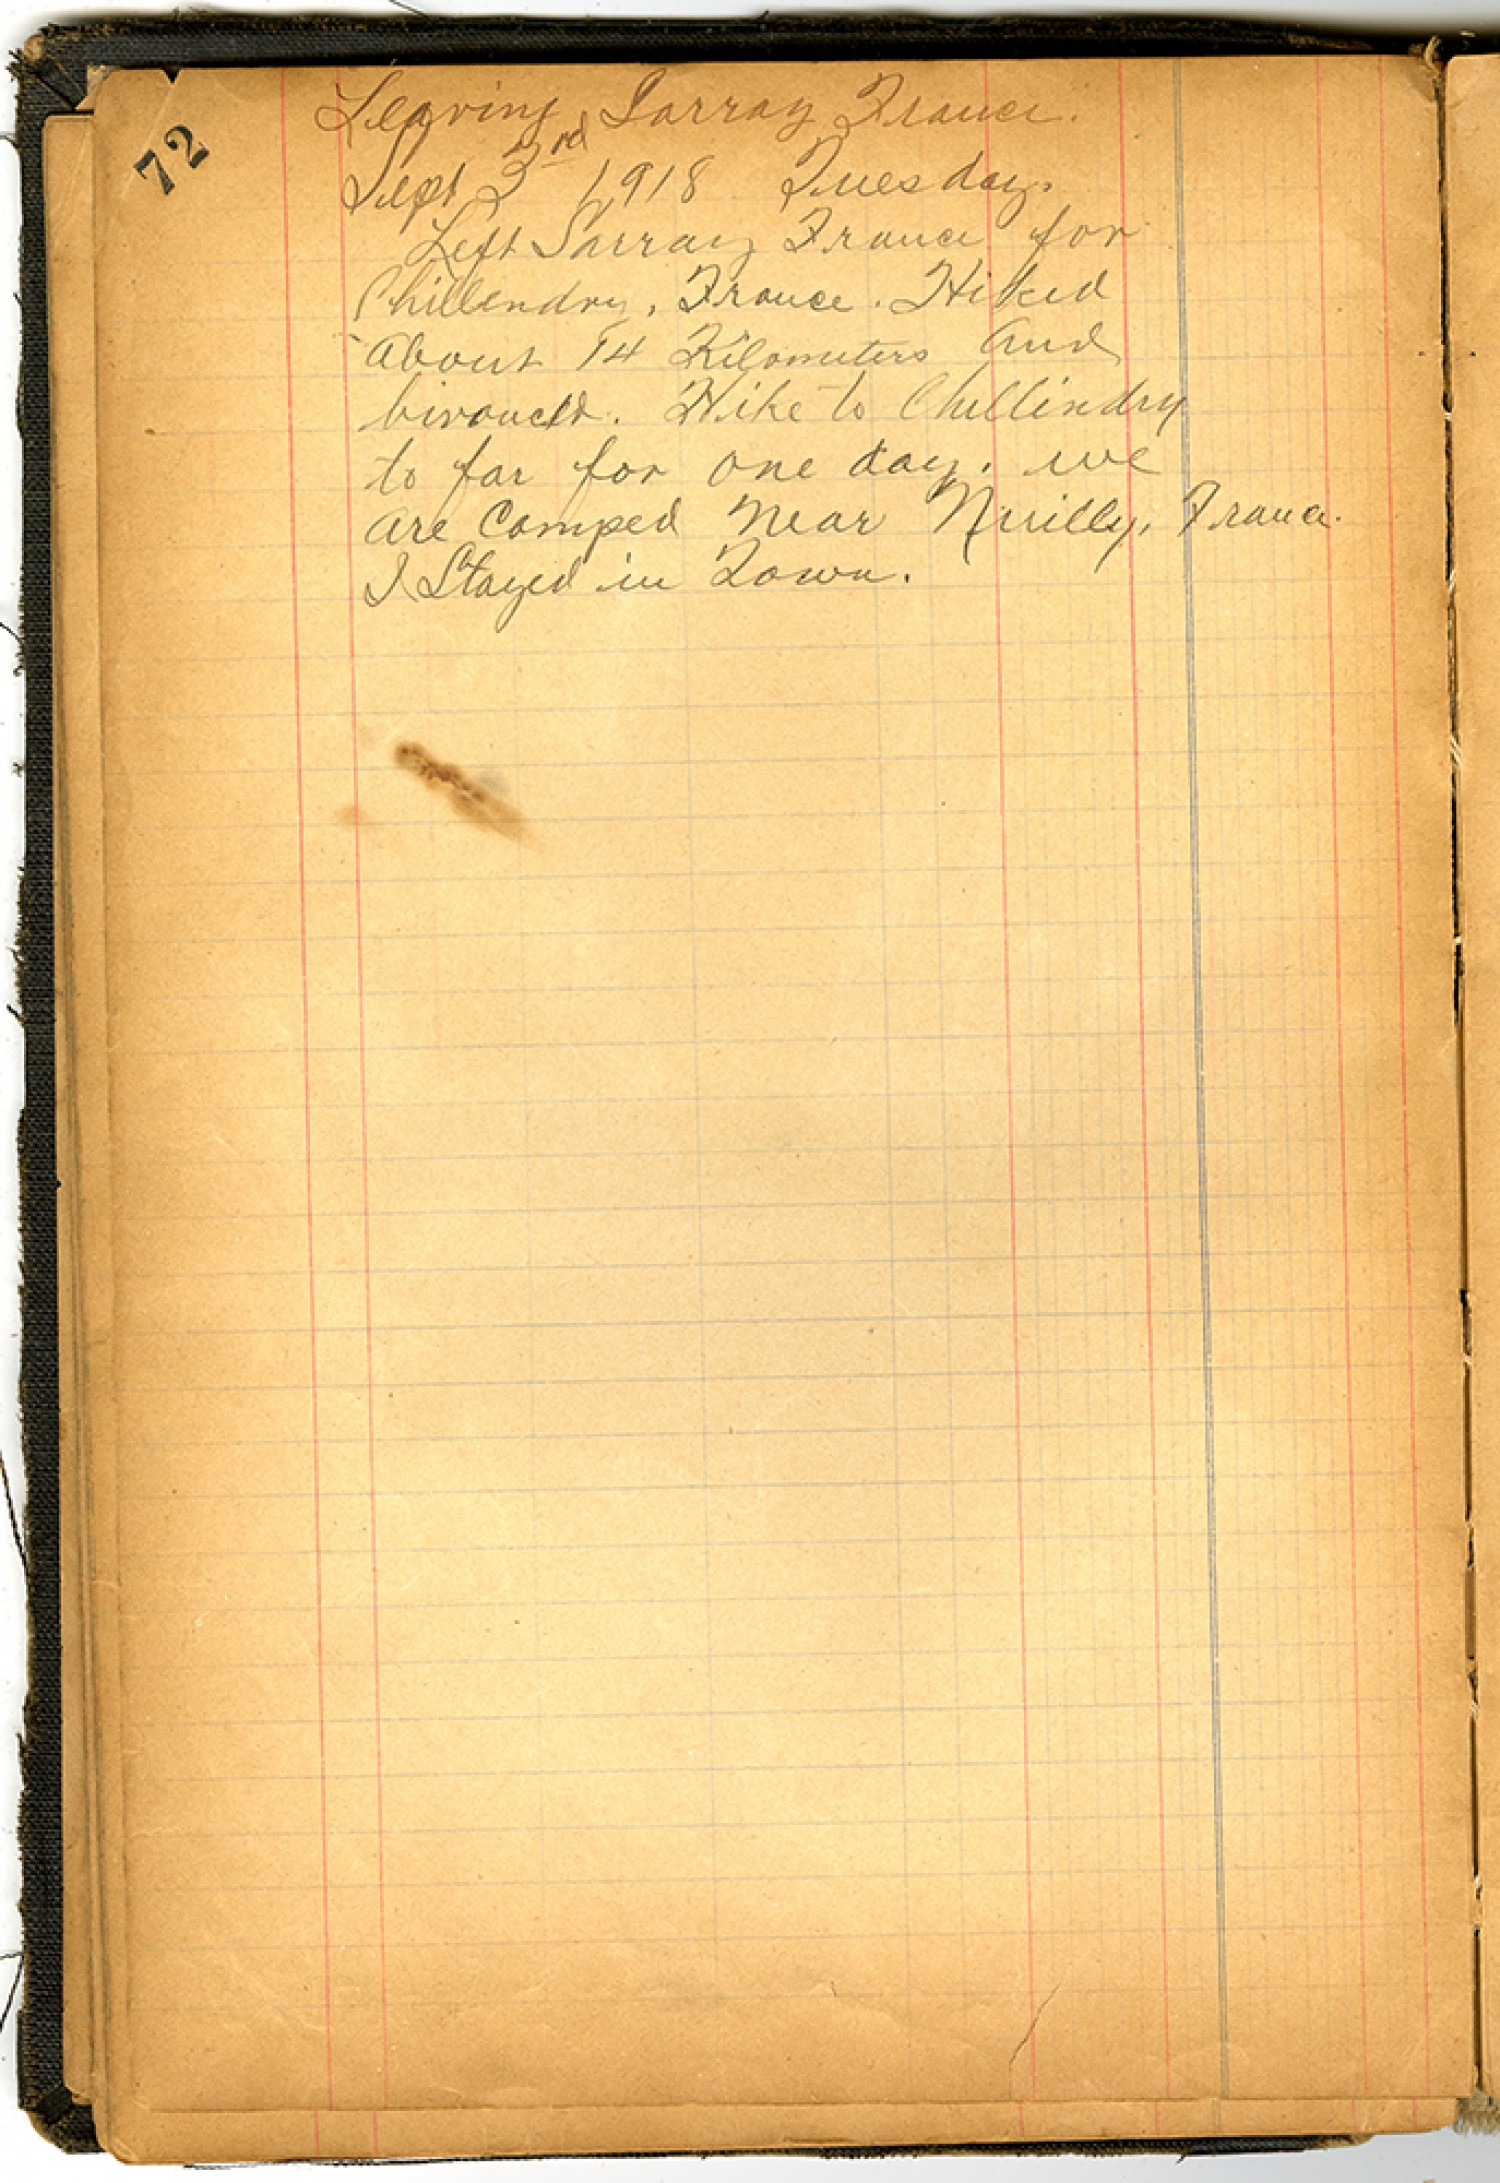 72
Leaving Sarray France.
Sept 3rd 1918 Tuesday.
Left Sarray France for
Chillendry, France. Hiked
About 14 Kilometers and
bivouckt. Hike to Chillindry
to far for one day. we
are Camped Near Nuilly, France.
I Stayed in Town.